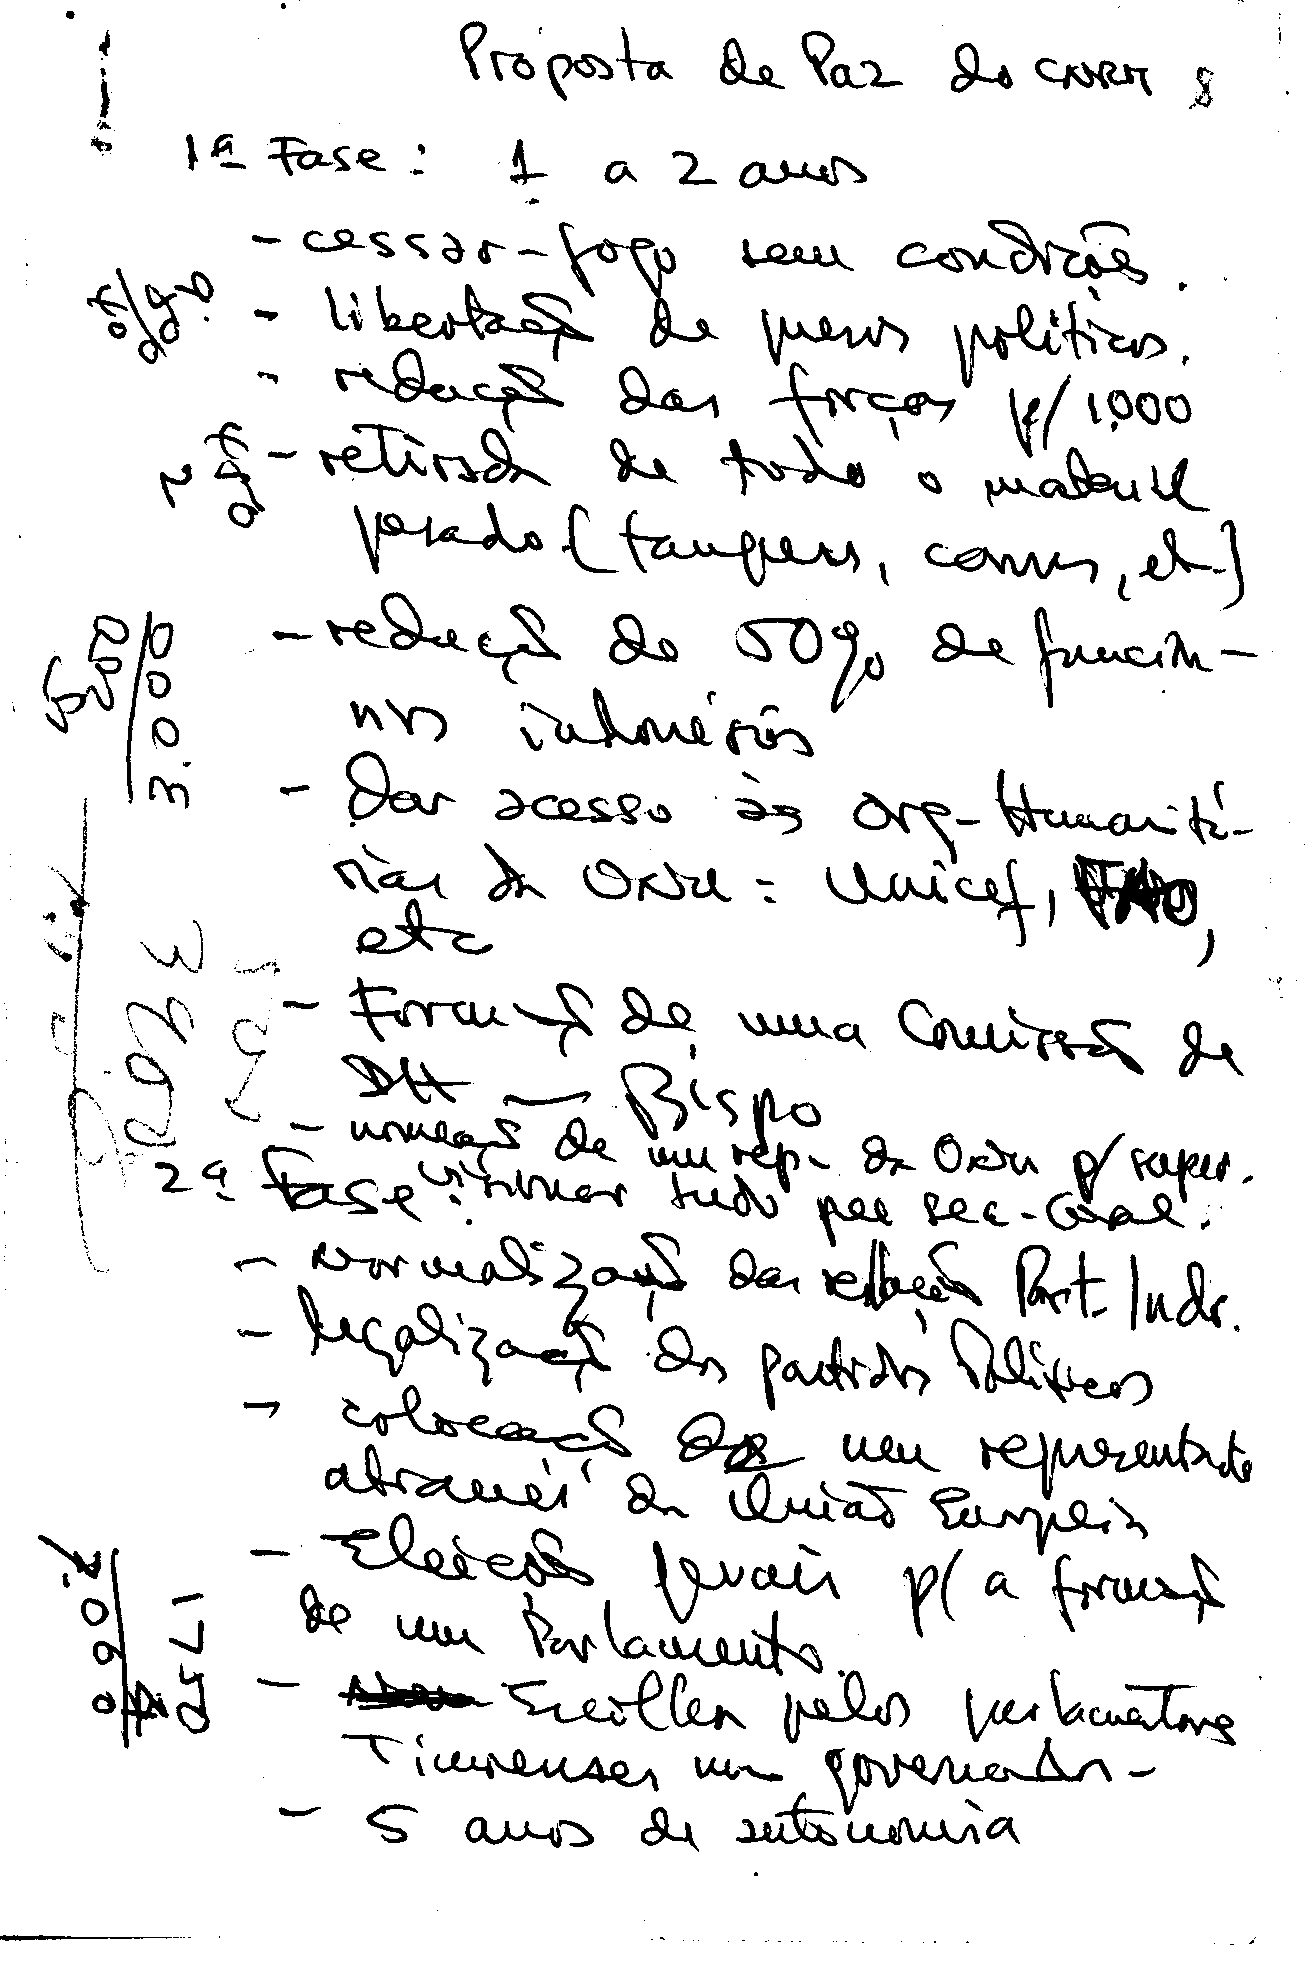 Proposta de Paz do CNRM 8
1ª Fase: 1 a 2 anos
- cessar-fogo sem condições.
- libertação de presos políticos.
- redução das forças p/ 1.000
- retirada de todo o material
pesado (tanques, carros, etc.)
- redução de 50% de funcioná-
rios indonésios
- Dar acesso às org-Humanitá-
rias da ONU: Unicef, FAO,
etc
- Formação de uma Comissão de
DH — Bispo
- nomeação de um rep. da ONU p/ super-
2ª Fase: visionar tudo pelo sec-Geral.
- Normalização das relações Port. Indo.
- legalização dos partidos Políticos
- colocação de um representante
através da União Europeia
- Eleições gerais p/ a formação
de um Parlamento.
- Escolher pelos parlamentares
Timorenses um governador-
- 5 anos de autonomia
5.000
3.000